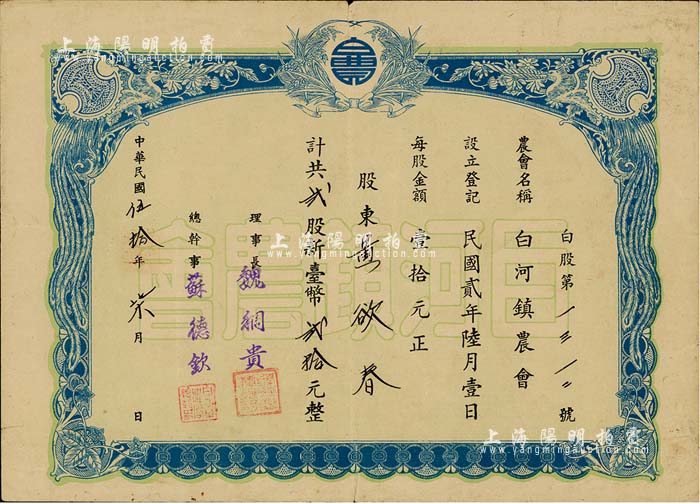 白股第一三一二號
農會名稱 白河鎮農會
設立登記 民國貳年陸月壹日
每股金額 壹拾元正
股東 欲春
計共貳股新臺幣貳拾元整
理事長 魏綱貴
總幹事 蘇德欽
中華民國伍拾年柒月 日
白河鎮農會
上海陽明拍賣
www.yangmingauction.com
上海陽明拍賣
www.yangmingauction.com
上海陽明拍賣
www.yangmingauction.com
上海陽明拍賣
www.yangmingauction.com